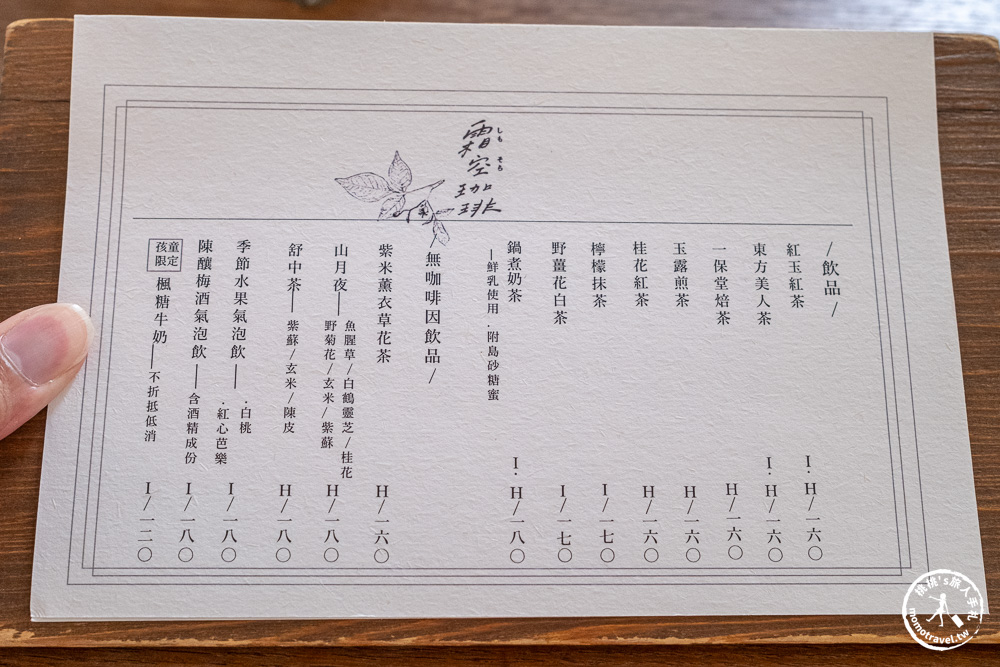 霜空珈琲
しも そら
/飲品/
紅玉紅茶 I.H/一六〇
東方美人茶 I.H/一六〇
一保堂焙茶 H/一六〇
玉露煎茶 H/一六〇
桂花紅茶 H/一六〇
檸檬抹茶 I/一七〇
野薑花白茶 I/一七〇
鍋煮奶茶 I.H/一八〇
—鮮乳使用.附島砂糖蜜
/無咖啡因飲品/
紫米薰衣草花茶 H/一六〇
山月夜—魚腥草/白鶴靈芝/桂花
野菊花/玄米/紫蘇 H/一八〇
舒中茶—紫蘇/玄米/陳皮 H/一八〇
季節水果氣泡飲—.白桃
.紅心芭樂 I/一八〇
陳釀梅酒氣泡飲—含酒精成份 I/一八〇
孩童限定 楓糖牛奶—不折抵低消 I/一二〇
桃桃's旅人手札
momotravel.tw